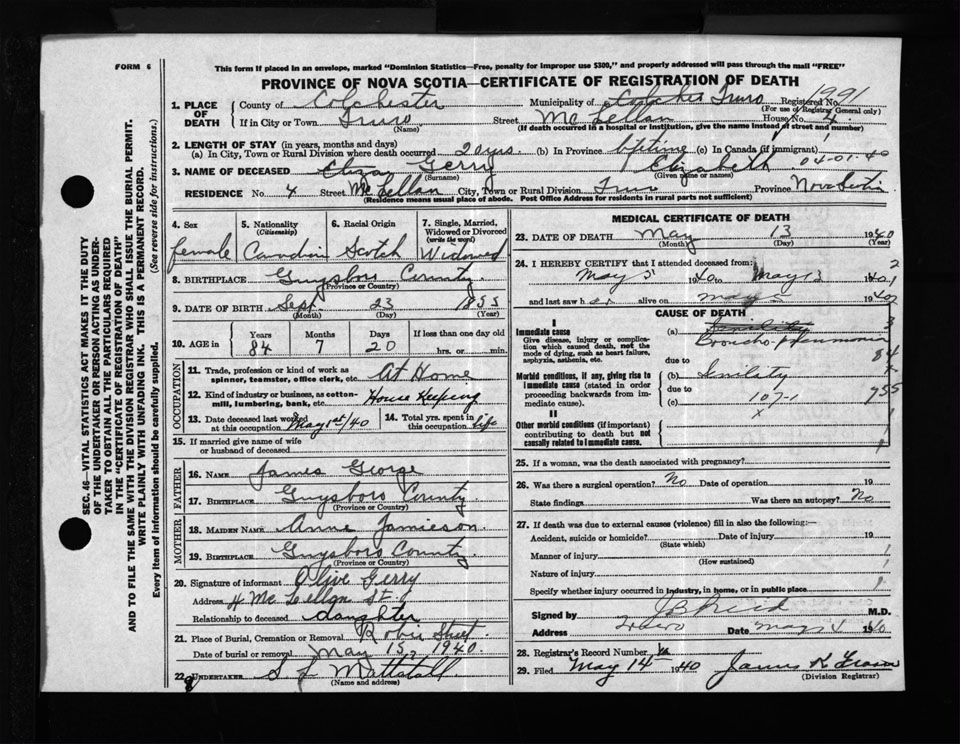 FORM 6
This form if placed in an envelope, marked "Dominion Statistics—Free, penalty for improper use $300," and properly addressed will pass through the mail "FREE"
PROVINCE OF NOVA SCOTIA—CERTIFICATE OF REGISTRATION OF DEATH
1991
1. PLACE OF DEATH County of Colchester Municipality of Colchester Truro Registered No.
(For use of Registrar General only)
If in City or Town Truro Street McLellan House No. 4
(Name) (If death occurred in a hospital or institution, give the name instead of street and number)
2. LENGTH OF STAY (in years, months and days)
(a) In City, Town or Rural Division where death occurred 20 yrs. (b) In Province Lifetime (c) In Canada (if immigrant)
04-01-40
3. NAME OF DECEASED Eliza Gerry Elizabeth
(Surname) (Given name or names)
RESIDENCE No. 4 Street McLellan City, Town or Rural Division Truro Province Nova Scotia
(Residence means usual place of abode. Post Office Address for residents in rural parts not sufficient)
4. Sex female
5. Nationality (Citizenship) Canadian
6. Racial Origin Scotch
7. Single, Married, Widowed or Divorced (write the word) Widowed
8. BIRTHPLACE Guysboro County
(Province or Country)
9. DATE OF BIRTH Sept. 23 1855
(Month) (Day) (Year)
10. AGE in Years 84 Months 7 Days 20 If less than one day old
hrs. or min.
OCCUPATION
11. Trade, profession or kind of work as spinner, teamster, office clerk, etc. At Home
12. Kind of industry or business, as cotton-mill, lumbering, bank, etc. House Keeping
13. Date deceased last worked at this occupation May 1st/40
14. Total yrs. spent in this occupation life
15. If married give name of wife or husband of deceased
FATHER
16. NAME James George
17. BIRTHPLACE Guysboro County
(Province or Country)
MOTHER
18. MAIDEN NAME Anne Jamieson
19. BIRTHPLACE Guysboro County
(Province or Country)
20. Signature of informant Olive Gerry
Address 4 McLellan St
Relationship to deceased daughter
21. Place of Burial, Cremation or Removal Robie Street
Date of burial or removal May 15, 1940
22. UNDERTAKER S Mattatall
(Name and address)
MEDICAL CERTIFICATE OF DEATH
23. DATE OF DEATH May 13 1940
(Month) (Day) (Year)
24. I HEREBY CERTIFY that I attended deceased from:
May 1940 to May 13 1940
and last saw her alive on May 1940
CAUSE OF DEATH
I
Immediate cause
Give disease, injury or complication which caused death, not the mode of dying, such as heart failure, asphyxia, asthenia, etc.
(a) Senility
Broncho-pneumonia
due to
Morbid conditions, if any, giving rise to immediate cause (stated in order proceeding backwards from immediate cause).
(b) Senility
due to
(c) 107-1
x
II
Other morbid conditions (if important) contributing to death but not causally related to immediate cause.
2
3
84
x
955
1
1
25. If a woman, was the death associated with pregnancy?
26. Was there a surgical operation? No Date of operation 19
State findings Was there an autopsy? No
27. If death was due to external causes (violence) fill in also the following:—
Accident, suicide or homicide? Date of injury 19
(State which)
Manner of injury
(How sustained)
Nature of injury
Specify whether injury occurred in industry, in home, or in public place
Signed by J B Reid M.D.
Address Truro Date May 4 1940
28. Registrar's Record Number
29. Filed May 14 1940 James K Fraser
(Division Registrar)
SEC. 46—VITAL STATISTICS ACT MAKES IT THE DUTY
OF THE UNDERTAKER OR PERSON ACTING AS UNDER-
TAKER TO OBTAIN ALL THE PARTICULARS REQUIRED
IN THE "CERTIFICATE OF REGISTRATION OF DEATH"
AND TO FILE THE SAME WITH THE DIVISION REGISTRAR WHO SHALL ISSUE THE BURIAL PERMIT.
WRITE PLAINLY WITH UNFADING INK. THIS IS A PERMANENT RECORD.
Every item of information should be carefully supplied. (See reverse side for instructions.)